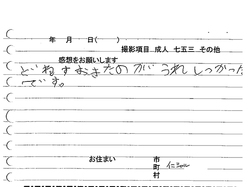 年 月 日( )
撮影項目 成人 七五三 その他
感想をお願いします
どれすおきたのがうれしっかった
です。
お住まい 市
町
村